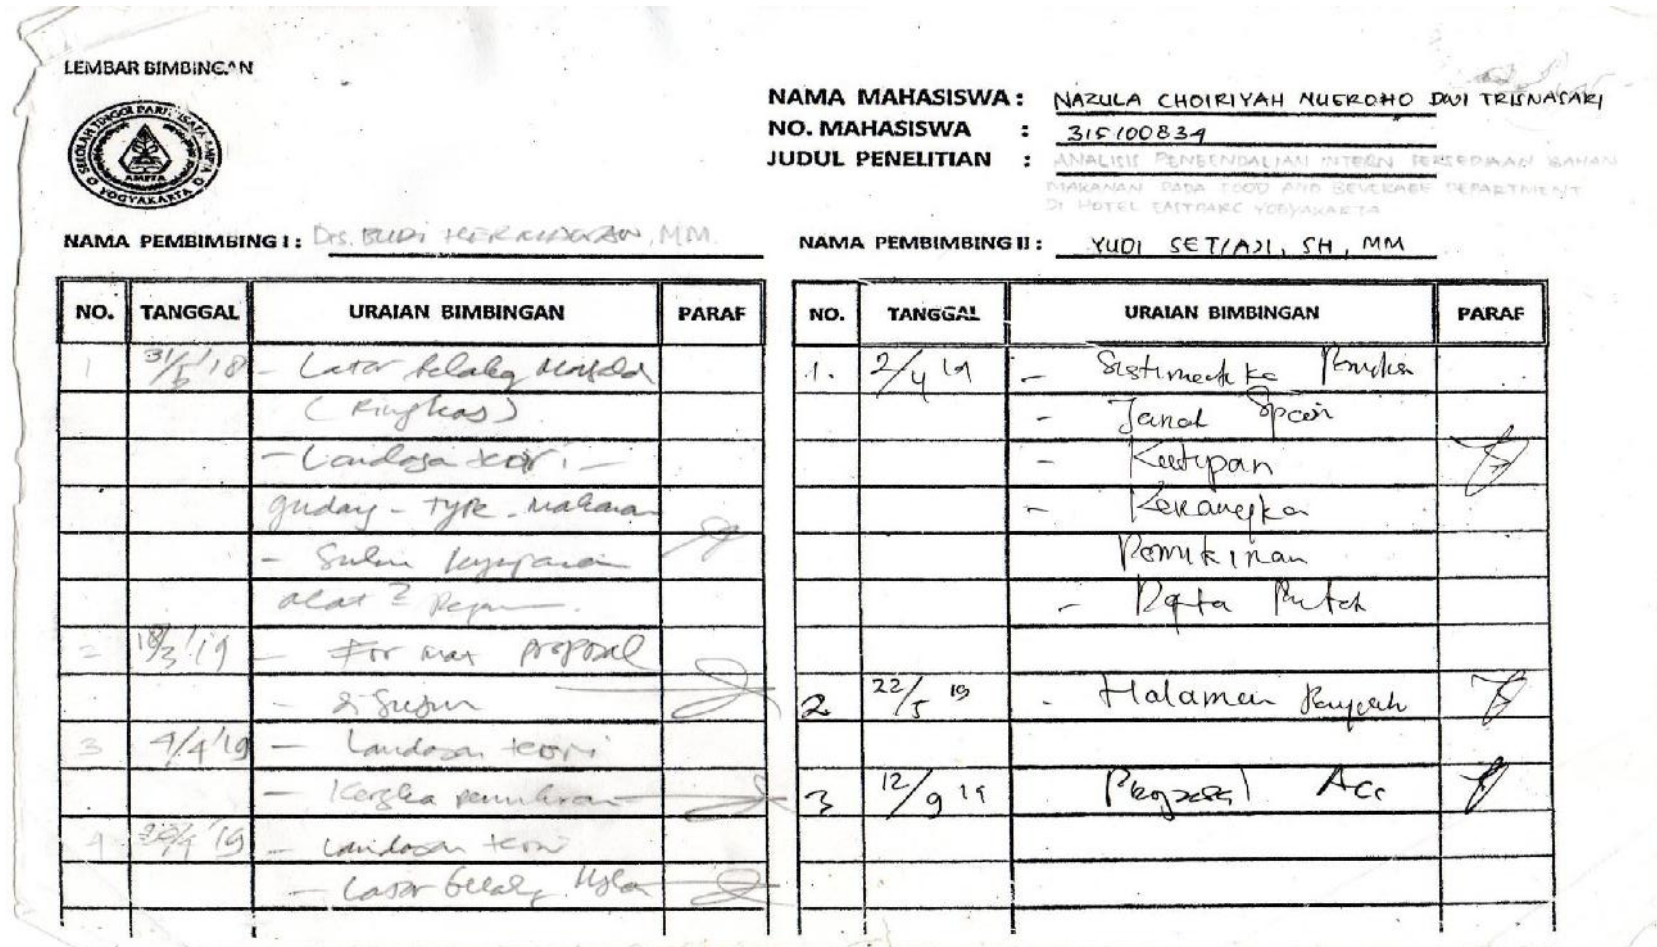 LEMBAR BIMBINGAN
SEKOLAH TINGGI PARIWISATA AMPTA
AMPTA
YOGYAKARTA
NAMA MAHASISWA : NAZULA CHOIRIYAH NUGROHO DWI TRISNASARI
NO. MAHASISWA : 315100834
JUDUL PENELITIAN : ANALISIS PENGENDALIAN INTERN PERSEDIAAN BAHAN
MAKANAN PADA FOOD AND BEVERAGE DEPARTMENT
DI HOTEL EASTPARC YOGYAKARTA
NAMA PEMBIMBING I : Drs. BUDI HERMAWAN, MM.
NAMA PEMBIMBING II : YUDI SETIAJI, SH, MM
NO. TANGGAL URAIAN BIMBINGAN PARAF
1 31/5/'18 - Latar belakg
(Ringkas)
- Landasa teori -
gudang - type - makanan
-
alat2
2 18/3/'19 - Format proposal
disusun
3 4/4/'19 - Landasan teori
- Kergka pemikiran
4 /4/'19 - Landasan teori
- Latar belakg
NO. TANGGAL URAIAN BIMBINGAN PARAF
1. 2/4 19 - Sistimatika
- Jarak Spasi
- Kutipan
- Kerangka
Pemikiran
-
2 22/5 19 - Halaman
3 12/9 19 Proposal Acc